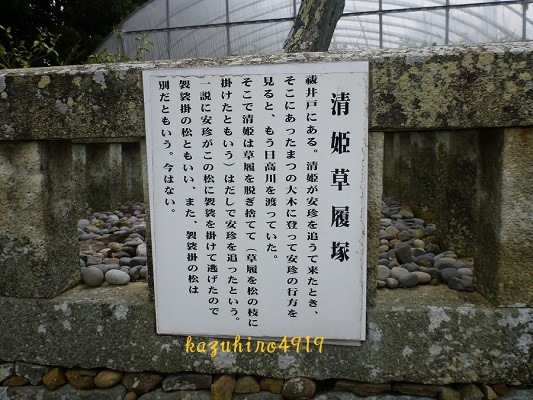 清姫草履塚
祓井戸にある。清姫が安珍を追うて来たとき、
そこにあったまつの大木に登って安珍の行方を
見ると、もう日高川を渡っていた。
そこで清姫は草履を脱ぎ捨てて（草履を松の枝に
掛けたともいう）はだしで安珍を追ったという。
一説に安珍がこの松に袈裟を掛けて逃げたので
袈裟掛の松ともいい、また、袈裟掛の松は
別だともいう。今はない。
kazuhiro4919